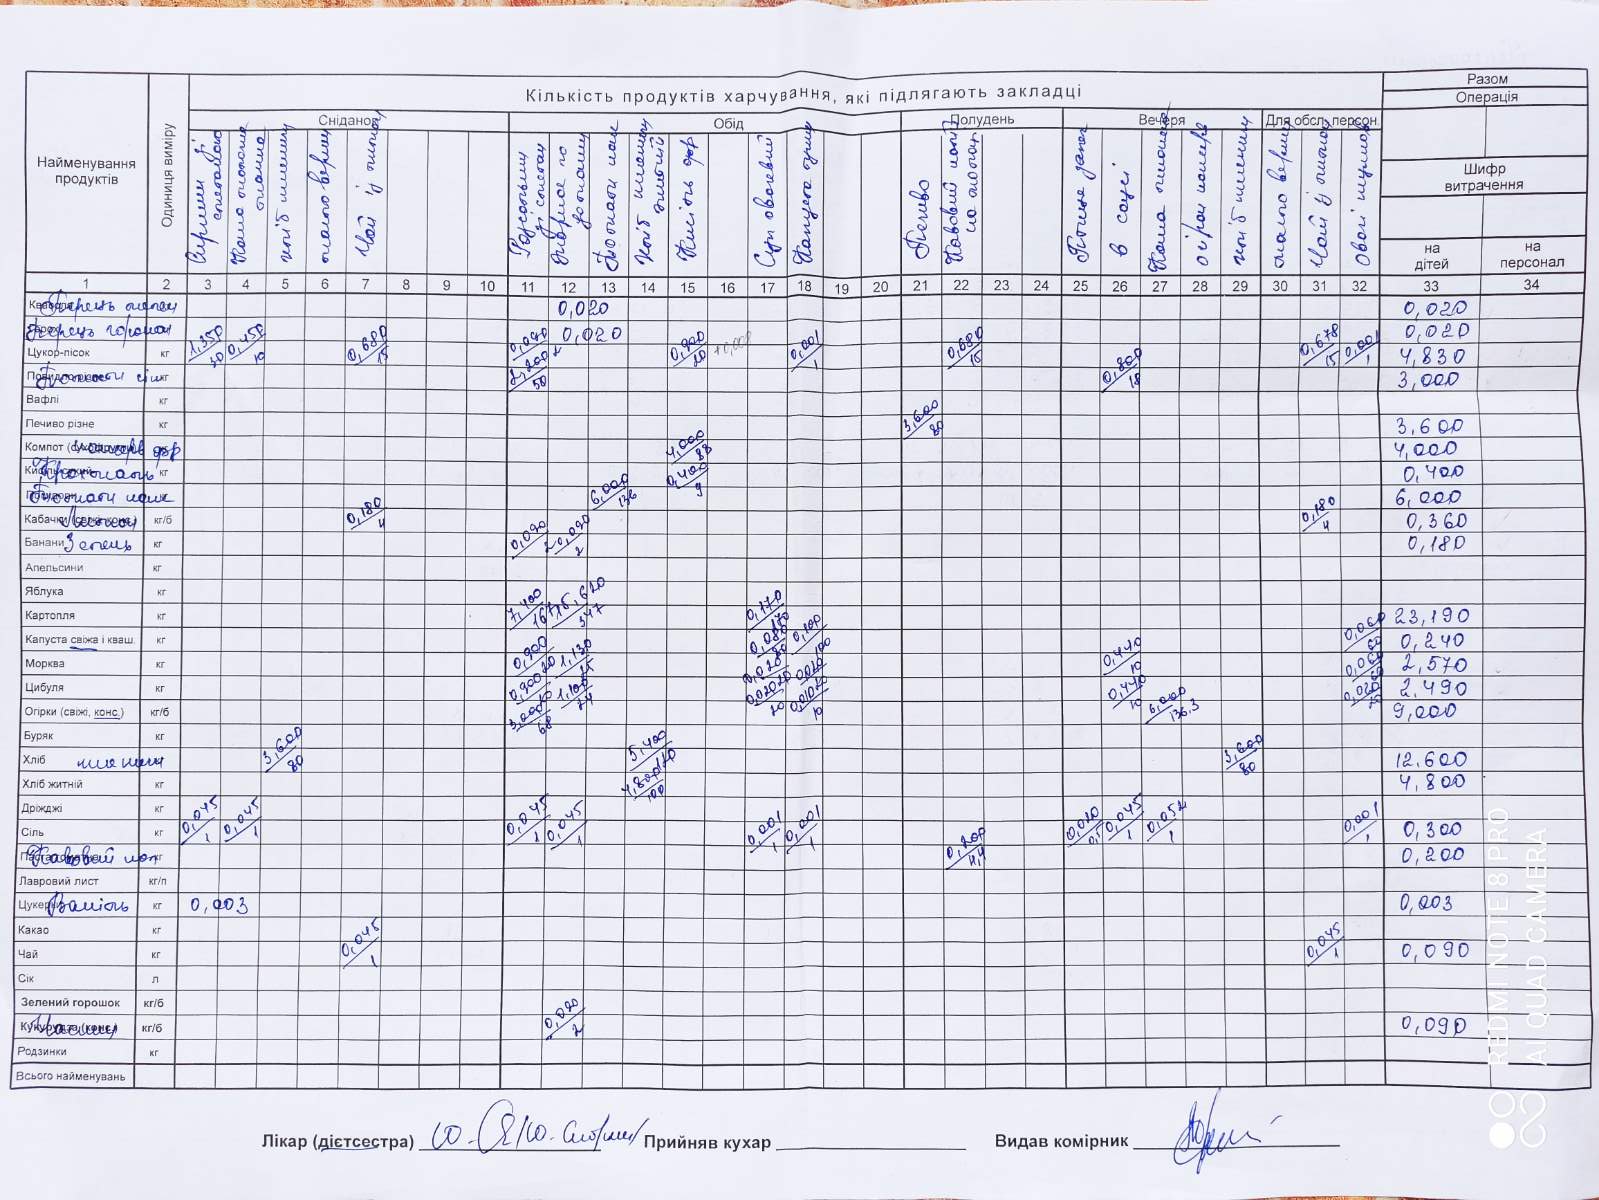 Кількість продуктів харчування, які підлягають закладці
Разом
Операція
Шифр витрачення
на дітей
на персонал
Найменування продуктів
Одиниця виміру
Сніданок
Обід
Полудень
Вечеря
Для обсл. персон.
Сирники зі сметаною
Каша
хліб пшенич
масло вершк
Чай із лимон
Розсольник зі сметан
Жаркое по
Томати кон
Хліб пшенич житній
Кисіль фр
Суп овочевий
Капуста туш
Печиво
Кавовий нап на молоці
в соусі
Каша
огірки консерв
хліб пшенич
масло верш
Чай із лимон
Овочі тушков
1 2 3 4 5 6 7 8 9 10 11 12 13 14 15 16 17 18 19 20 21 22 23 24 25 26 27 28 29 30 31 32 33 34
Перець 0,020 0,020
Перець 0,020 0,020
Цукор-пісок кг 1,350/30 0,450/10 0,680/15 0,090/2 0,900/20 0,001/1 0,680/15 0,678/15 0,001/1 4,830
кг 2,200/50 0,800/18 3,000
Вафлі кг
Печиво різне кг 3,600/80 3,600
Компот консерв фр 4,000/88 4,000
Крохмаль кг 0,400/9 0,400
Томати кон 6,000/136 6,000
Кабачки Лимон кг/б 0,180/4 0,180/4 0,360
Банани Зелень кг 0,090/2 0,090/2 0,180
Апельсини кг
Яблука кг
Картопля кг 7,400/167 15,620/347 0,170/170 23,190
Капуста свіжа і кваш. кг 0,080/80 0,100/100 0,060/60 0,240
Морква кг 0,900/20 1,130/25 0,020/20 0,020 0,440/10 0,060 2,570
Цибуля кг 0,900/20 1,100/24 0,020/20 0,010/10 0,440/10 0,020/20 2,490
Огірки (свіжі, конс.) кг/б 3,000/68 6,000/136,3 9,000
Буряк кг
Хліб пшенич кг 3,600/80 5,400/120 3,600/80 12,600
Хліб житній кг 4,800/100 4,800
Дріжджі кг
Сіль кг 0,045/1 0,045/1 0,045/1 0,045/1 0,001/1 0,001/1 0,020/0,5 0,045/1 0,052/1 0,001/1 0,300
Кавовий нап кг 0,200/4,4 0,200
Лавровий лист кг/п
Цукерки Ваніль кг 0,003 0,003
Какао кг
Чай кг 0,045/1 0,045/1 0,090
Сік л
Зелений горошок кг/б
Кукурудза (конс.) Часник кг/б 0,090/2 0,090
Родзинки кг
Всього найменувань
Лікар (дієтсестра) Прийняв кухар Видав комірник
REDMI NOTE 8 PRO
AI QUAD CAMERA